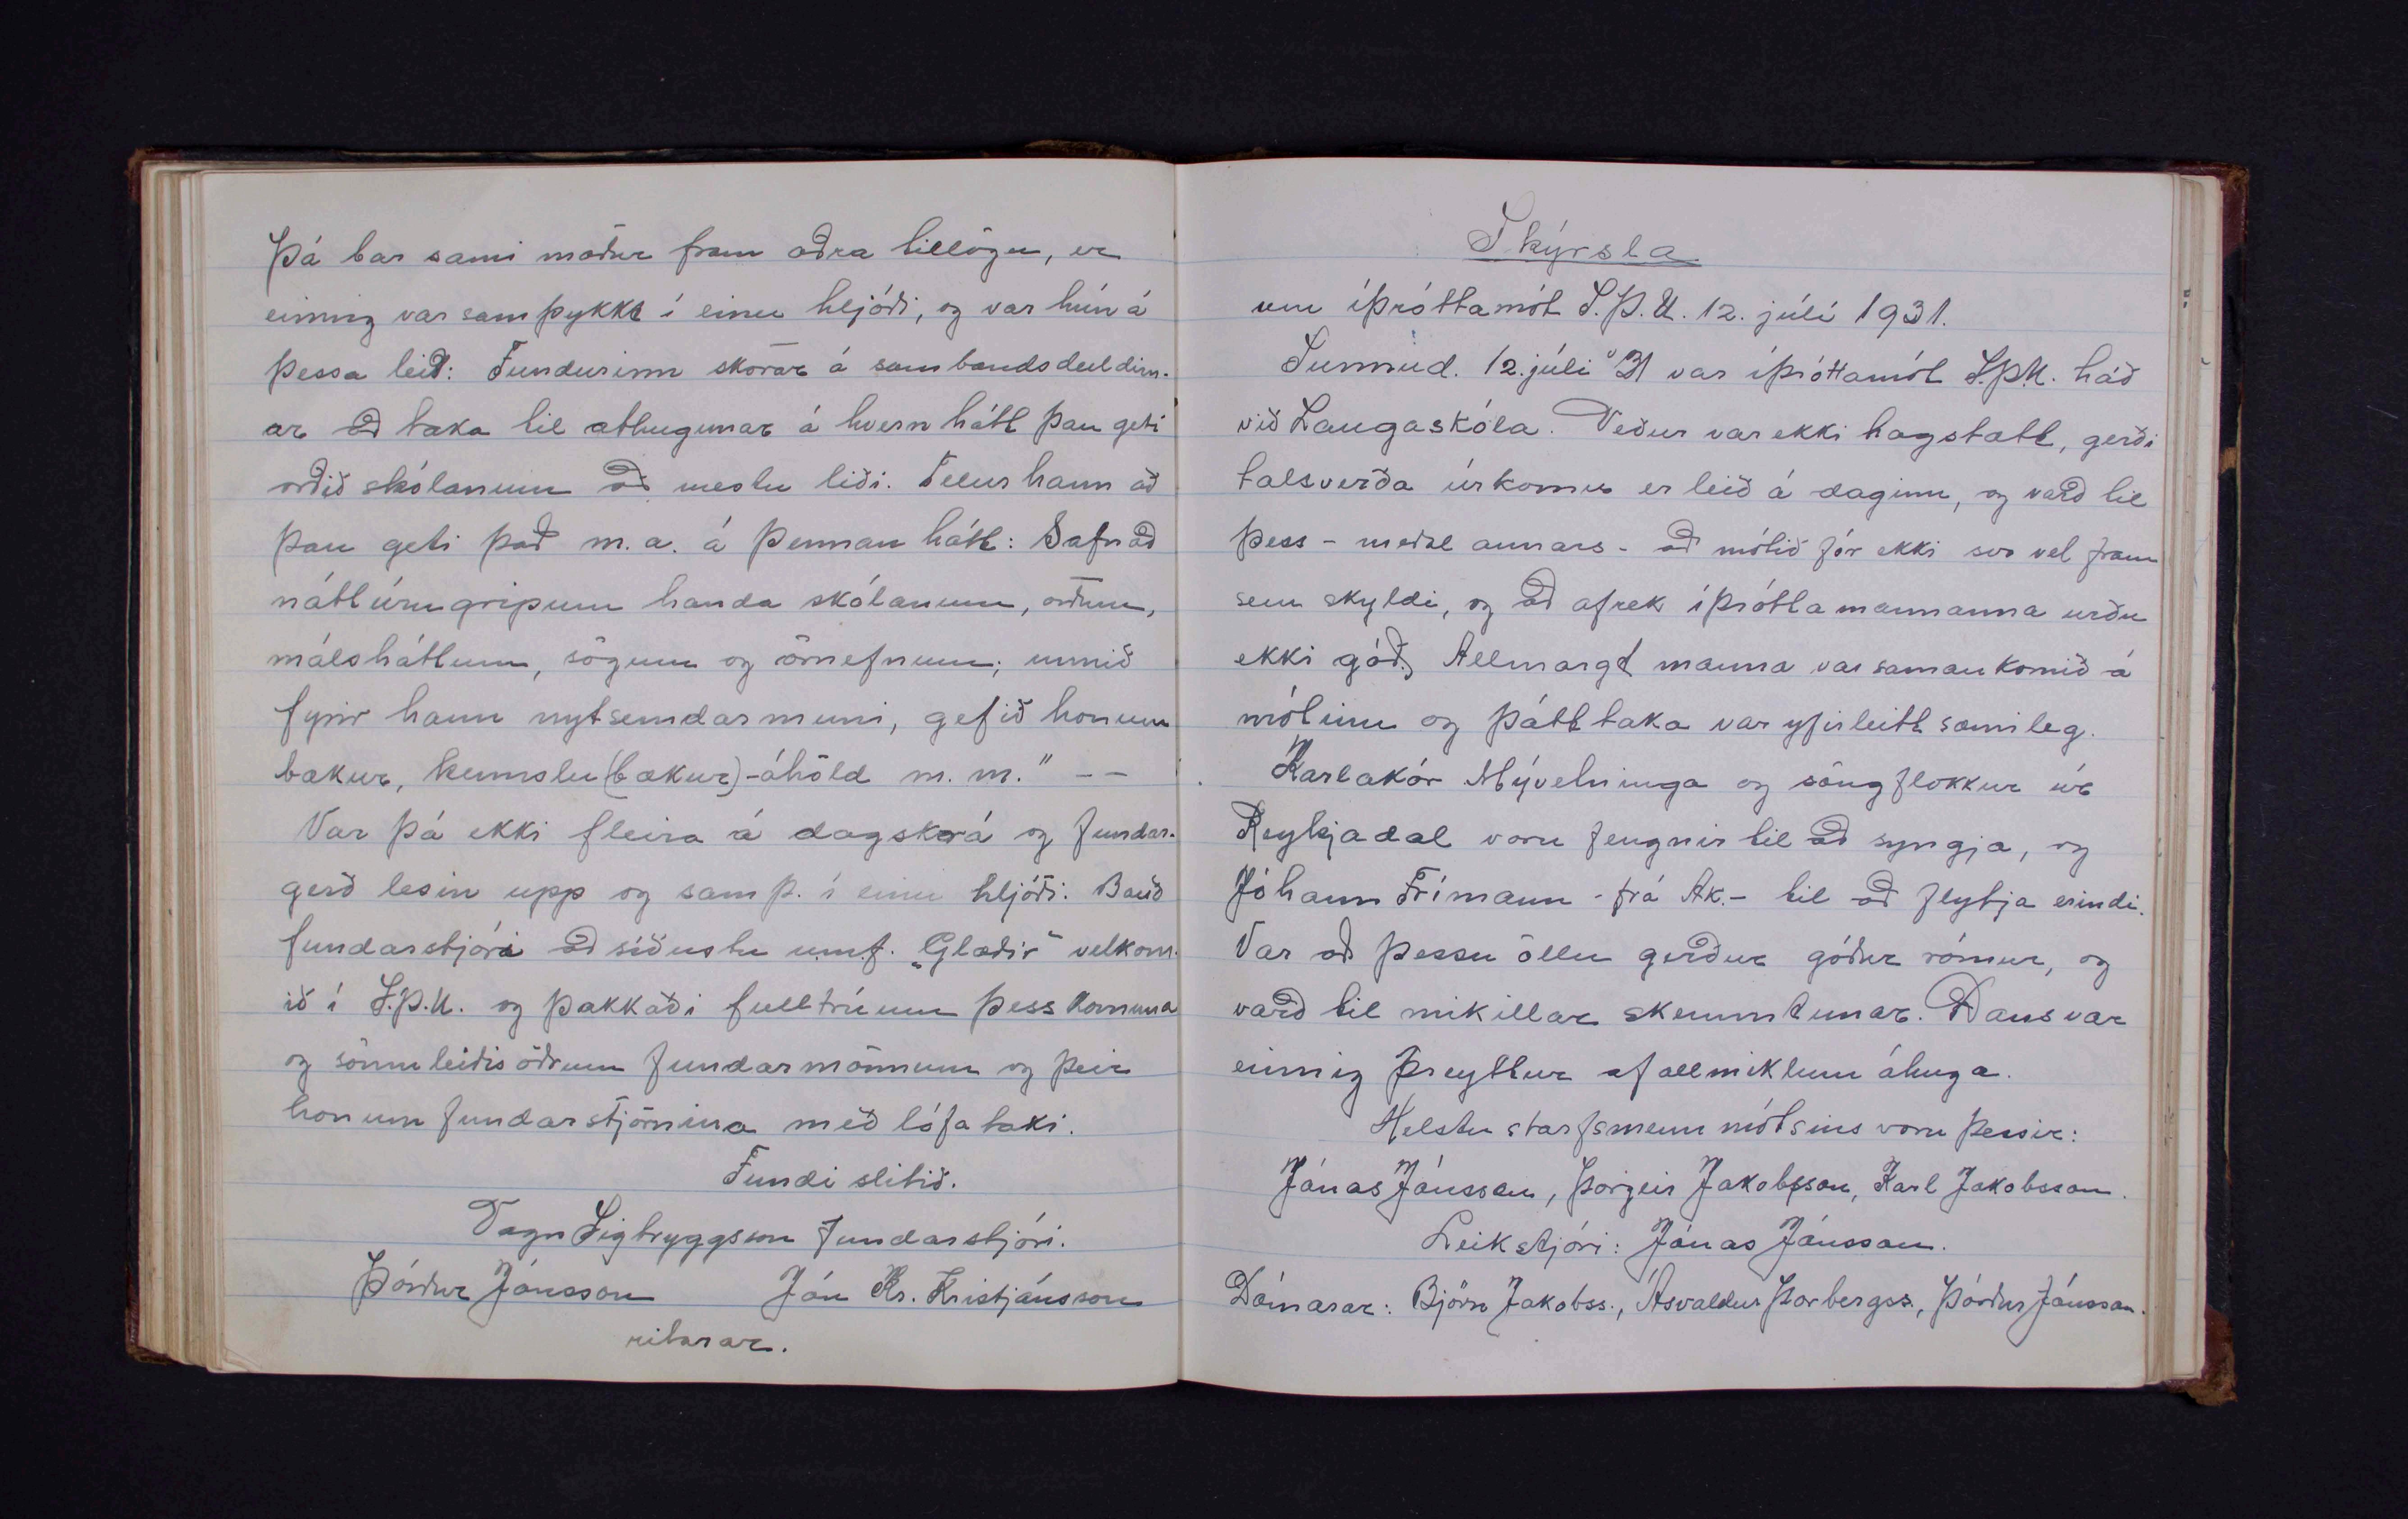 Þá bar sami maður fram aðra tillögu, er
einnig var samþykkt í einu hljóði, og var hún á
þessa leið: Fundurinn skorar á sambandsdeildirn-
ar að taka til athugunar á hvern hátt þau geti
orðið skólanum að mestu liði. Telur hann að
þau geti það m.a. á þennan hátt: Safnað
náttúrugripum handa skólanum, orðum,
málsháttum, sögum og örnefnum; unnið
fyrir hann nytsemdarmuni, gefið honum
bækur, kennslu(bækur)-áhöld m. m." --
Var þá ekki fleira á dagskrá og fundar-
gerð lesin upp og samþ. í einu hljóði. Bauð
fundarstjóri að síðustu u.m.f. „Glæðir" velkom-
ið í S.Þ.U. og þakkaði fulltrúum þess komuna
og sömuleiðis öðrum fundarmönnum og þeir
honum fundarstjórnina með lófataki.
Fundi slitið.
Vagn Sigtryggsson fundarstjóri.
Þórður Jónsson Jón Kr. Kristjánsson
ritarar.
Skýrsla
um íþróttamót S.Þ.U. 12. júlí 1931.
Sunnud. 12. júlí '31 var íþróttamót S.Þ.U. háð
við Laugaskóla. Veður var ekki hagstætt, gerði
talsverða úrkomu er leið á daginn, og varð til
þess - meðal annars - að mótið fór ekki svo vel fram
sem skyldi, og að afrek íþróttamannanna urðu
ekki góð. Allmargt manna var samankomið á
mótinu og þátttaka var yfirleitt sæmileg.
Karlakór Mývetninga og söngflokkur úr
Reykjadal voru fengnir til að syngja, og
Jóhann Frímann - frá Ak. - til að flytja erindi.
Var að þessu öllu gerður góður rómur, og
varð til mikillar skemmtunar. Dans var
einnig þreyttur af allmiklum áhuga.
Helstu starfsmenn mótsins voru þessir:
Jónas Jónsson, Þorgeir Jakobsson, Karl Jakobsson.
Leikstjóri: Jónas Jónsson.
Dómarar: Björn Jakobss., Ásvaldur Þorbergss., Þórður Jónsson.